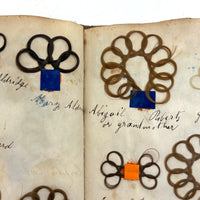 Aldridge
Mary Ald
Abigail Roberts
or grandmother